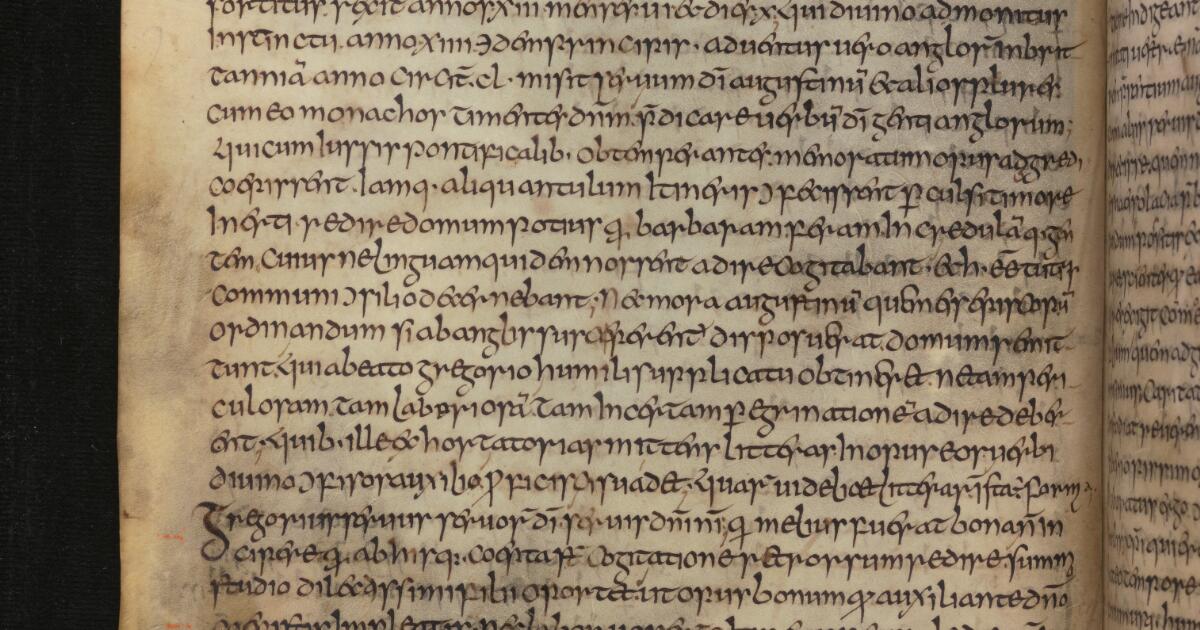 sortitus rexit annos xiii menses ui & dies x. qui diuino admonitus
Instinctu. anno xiiii ÷dem principis. aduentus uero anglorū in brit
tanniā anno circit̄. cl. misit seruum dī augustinū & alios plures
cum eo monachos timentes dn̄m. p̄dicare uerbū dī genti anglorum;
Qui cum iussis pontificalib. obtemperantes. memoratum opus adgredi
coepissent. Iamq. aliquantulum Itineris ɔfecissent ꝑculsi timore
Inerti. redire domum potius q̄. barbaram feram Incredulāq. gen
tem. cuius ne linguam quidem nossent adire cogitabant. & h. ēē tutius
communi ɔsilio decernebant. Nec mora augustinū quem eis ep̄um
ordinandum si ab anglis susciperent̄ disposuerat. domum remit
tunt. qui a beato gregorio humili supplicatu obtiner&. ne tam peri
culosam. tam laboriosā. tam Incertam ꝑegrinationē adire deber
ent. quib. ille exhortatorias mittens litteras In opus eos uerbi
diuino ɔfisos auxilio ꝓficisci suad&. quar̄ uidelic& litterar̄ ista ē forma
Gregorius seruus seruor̄ dī seruis dn̄i nr̄i. q̄ melius fuerat bona n̄ in
cipere q̄. ab his q. coepta s̄t cogitatione retrorsum redire. summo
studio dilectissimi filii oport& ut opus bonum qđ auxiliante dn̄o